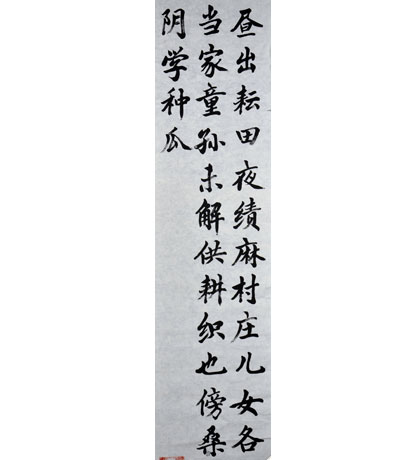 昼出耘田夜绩麻村庄儿女各
当家童孙未解供耕织也傍桑
阴学种瓜